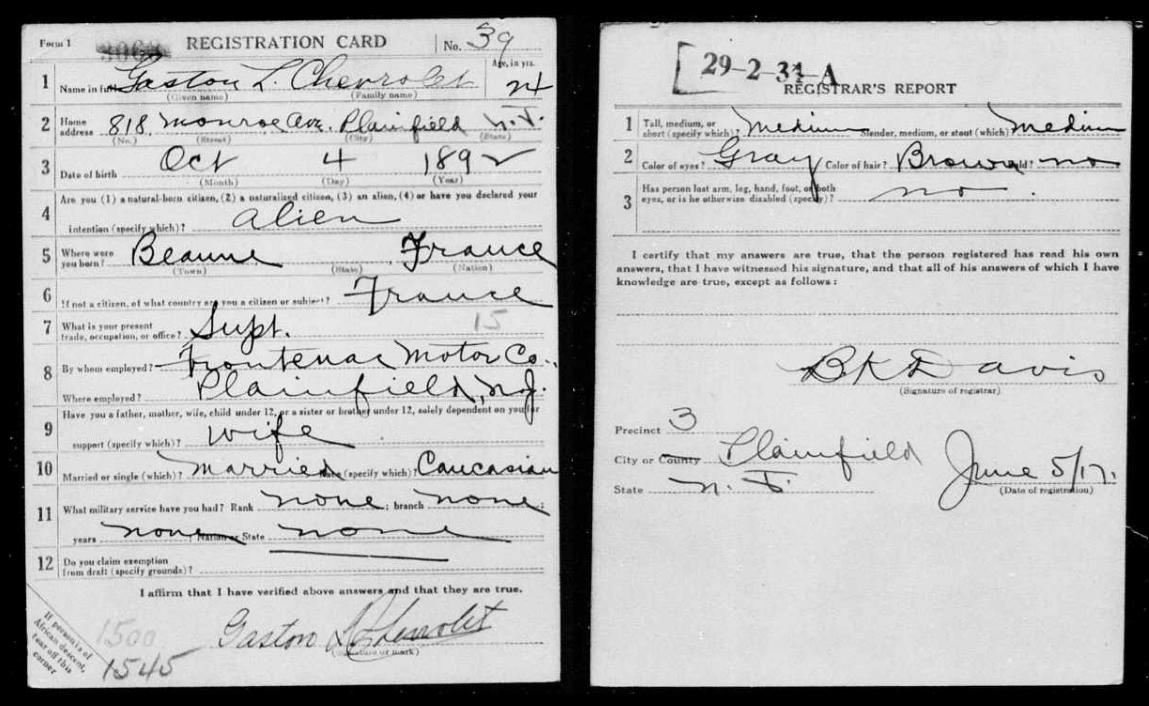 Form 1 REGISTRATION CARD No. 39
1 Name in full Gaston L. Chevrolet Age, in yrs. 24
(Given name) (Family name)
2 Home address 818 Monroe Ave. Plainfield N. J.
(No.) (Street) (City) (State)
3 Date of birth Oct 4 1892
(Month) (Day) (Year)
4 Are you (1) a natural-born citizen, (2) a naturalized citizen, (3) an alien, (4) or have you declared your
intention (specify which)? alien
5 Where were you born? Beaune France
(Town) (State) (Nation)
6 If not a citizen, of what country are you a citizen or subject? France
7 What is your present trade, occupation, or office? Supt. 15
8 By whom employed? Frontenac Motor Co.
Where employed? Plainfield, N.J.
9 Have you a father, mother, wife, child under 12, or a sister or brother under 12, solely dependent on you for
support (specify which)? wife
10 Married or single (which)? married Race (specify which)? Caucasian
11 What military service have you had? Rank none; branch none;
years none Nation or State none
12 Do you claim exemption
from draft (specify grounds)?
I affirm that I have verified above answers and that they are true.
Gaston L Chevrolet
(Signature or mark)
If person is of
African descent,
tear off this
corner
1500
1545
29-2-31-A
REGISTRAR'S REPORT
1 Tall, medium, or short (specify which)? Medium Slender, medium, or stout (which)? Medium
2 Color of eyes? Gray Color of hair? Brown Bald? no
3 Has person lost arm, leg, hand, foot, or both
eyes, or is he otherwise disabled (specify)? no
I certify that my answers are true, that the person registered has read his own
answers, that I have witnessed his signature, and that all of his answers of which I have
knowledge are true, except as follows:
B K Davis
(Signature of registrar)
Precinct 3
City or County Plainfield
State N. J.
June 5/17.
(Date of registration)